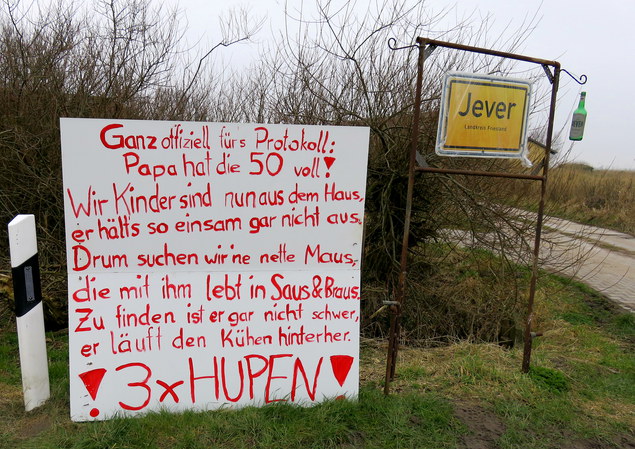 Ganz offiziell fürs Protokoll:
Papa hat die 50 voll!
Wir Kinder sind nun aus dem Haus,
er hält's so einsam gar nicht aus.
Drum suchen wir 'ne nette Maus,
die mit ihm lebt in Saus & Braus.
Zu finden ist er gar nicht schwer,
er läuft den Kühen hinterher.
! 3 x HUPEN !
Jever
Landkreis Friesland